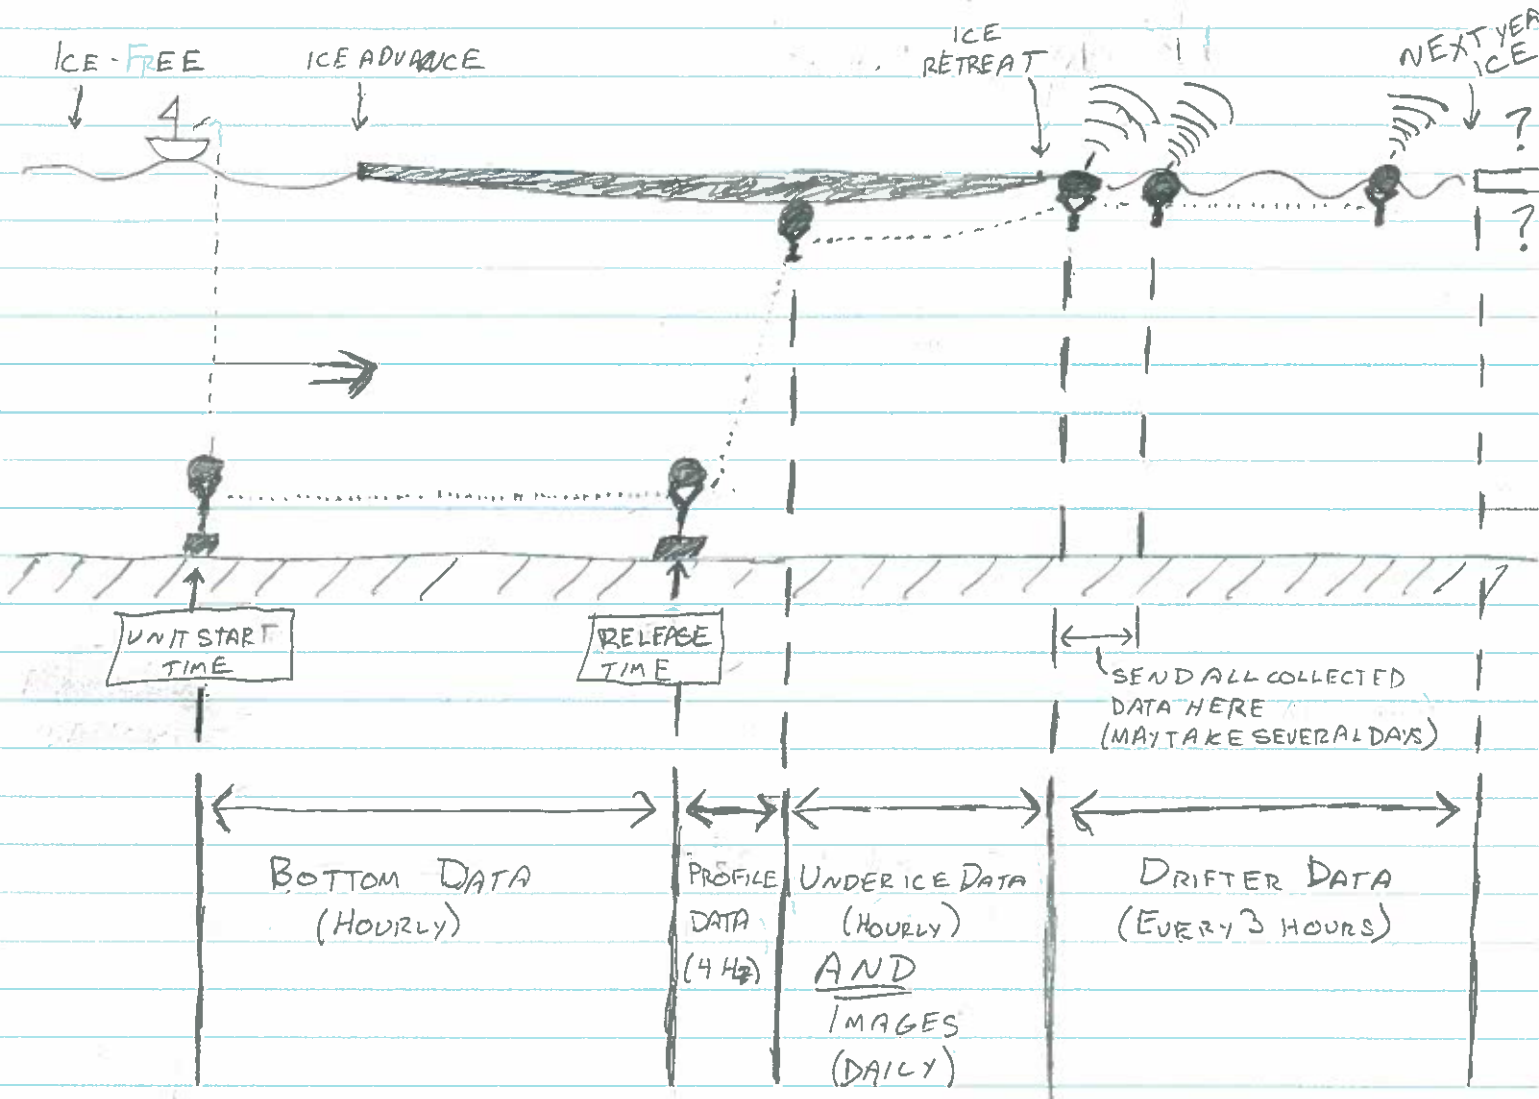 ICE-FREE
ICE ADVANCE
ICE
RETREAT
NEXT YEA
ICE
?
?
UNIT START
TIME
RELEASE
TIME
SEND ALL COLLECTED
DATA HERE
(MAY TAKE SEVERAL DAYS)
BOTTOM DATA
(HOURLY)
PROFILE
DATA
(4 Hz)
UNDER ICE DATA
(HOURLY)
AND
IMAGES
(DAILY)
DRIFTER DATA
(EVERY 3 HOURS)